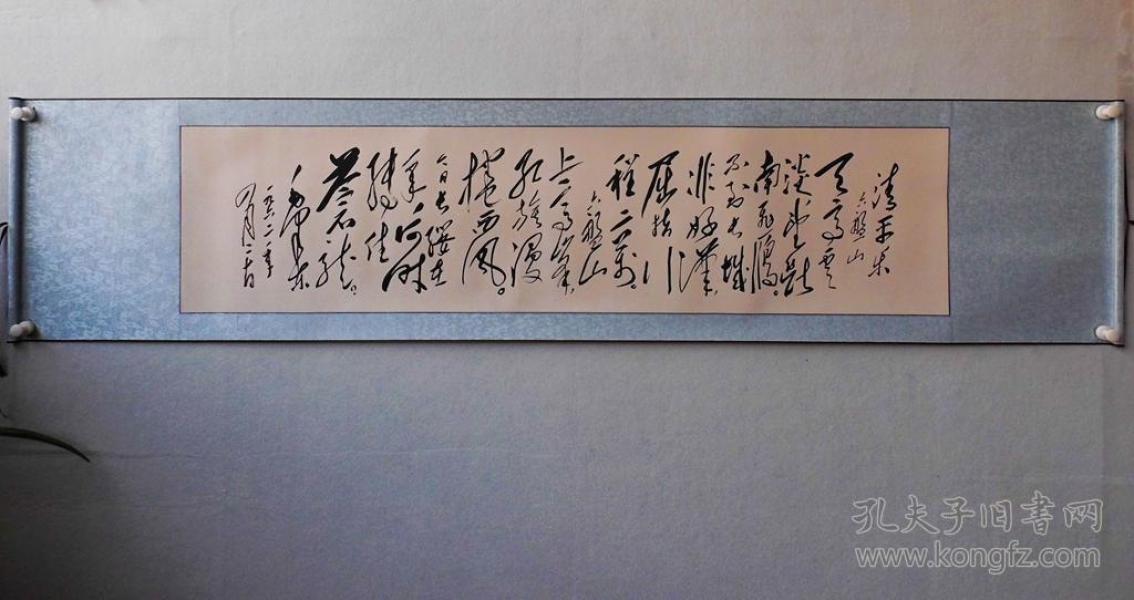 清平乐
六盘山
天高云
淡望断
南飞雁。
不到长城
非好汉，
屈指行
程二万。
六盘山
上高峰，
红旗漫
捲西风。
今日长缨在
手，何时
缚住
苍龙。
毛泽东
孔夫子旧书网
www.kongfz.com